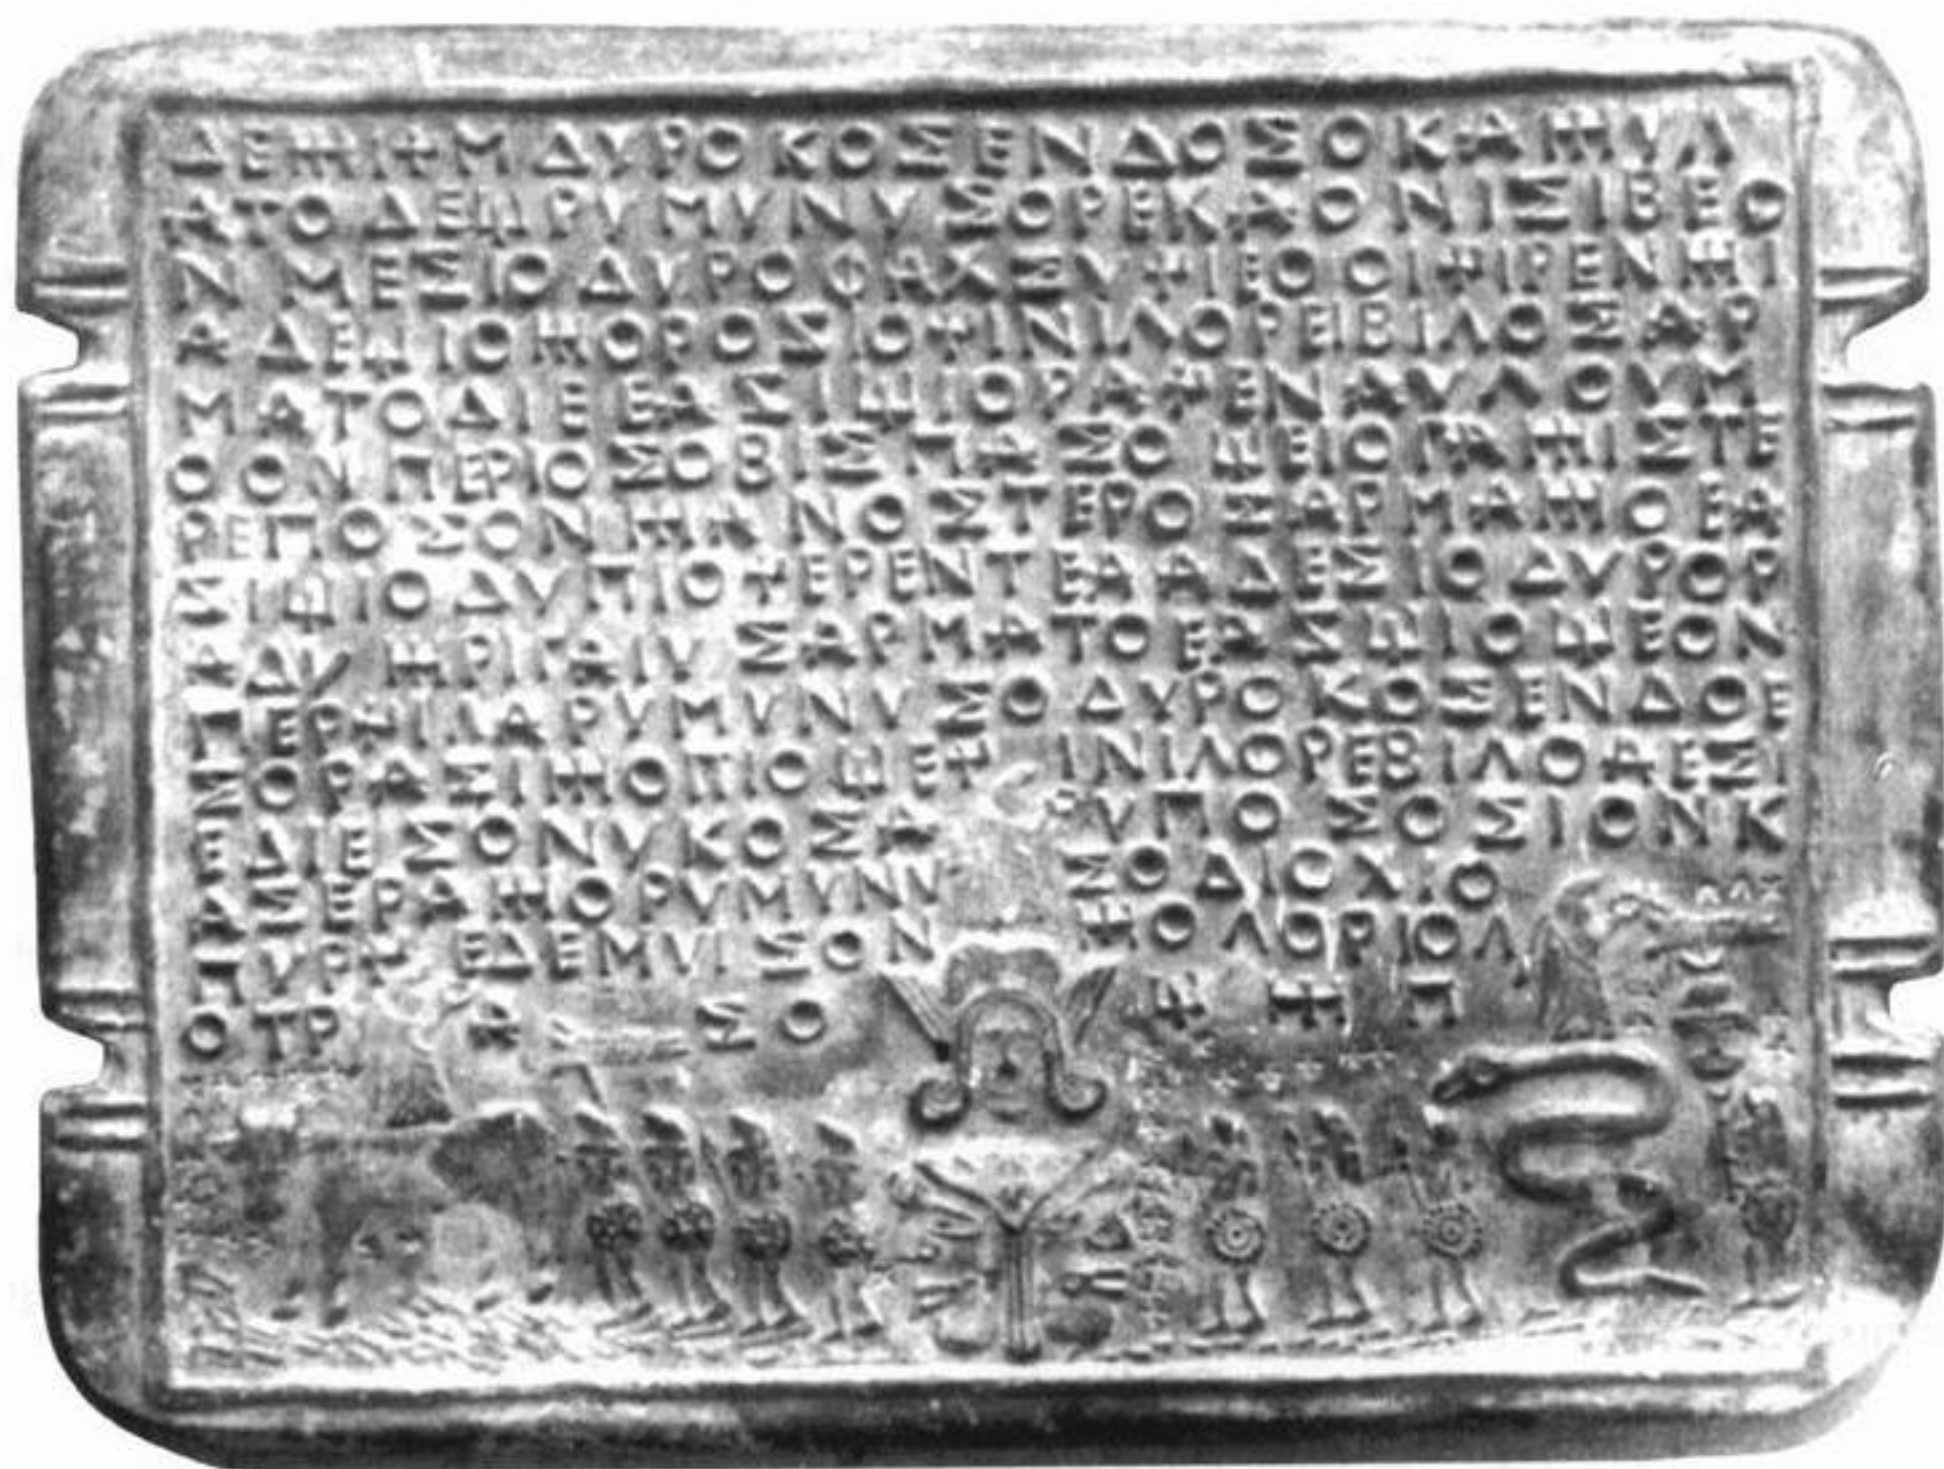 ΔΕЖΙΨΜ ΔΥΡΟ ΚΟΣΕΝΔΟΣΟ ΚΑЖΥΛ
ΑΤΟ ΔΕΨΡΥΜΥΝΥ ΣΟΡΕΚΑΟΝΙΣΙΒΕΟ
Ν ΜΕΣΙΟ ΔΥΡΟ ΦΑΧΣΥΨΙΕΟΙΟΙΨΙΡΕΝЖΙ
Α ΔΕΨΙΟЖΟΡΟΣΙΟΨΙΝΙΛΟΡΕΙΒΙΛΟΣΑΡ
ΜΑΤΟ ΔΙΕΕΑΣΙΨΙΟΡΑΨΕΝΑΥΛΟΥΜ
ΟΟΝ ΠΕΡΙΟΣΟΒΙΣΠΑΣΟ ΨΕΙΟΠΑЖΙΣΤΕ
ΡΕΠΟΣΟΝЖΑ ΝΟΣΤΕΡΟ ΣΑΡΜΑЖΟΕΑ
ΣΙΨΙΟ ΔΥΠΙΟΨΕΡΕΝΤΕΑ ΑΔΕΣΙΟ ΔΥΡΟΡ
ΑΔΥ ЖΡΙΓΑΙΥ ΣΑΡΜΑΤΟ ΕΑΣΨΙΟ ΨΕΟΝ
ΠΕΡΨΙΛΑΡΥΜΥΝΥ ΣΟ ΔΥΡΟ ΚΟΣΕΝΔΟΕ
ΣΟΡΑΣΙЖΟΠΙΟ ΨΕΨ ΙΝΙΛΟΡΕΒΙΛΟΑΕΣΙ
ΕΔΙΕ ΣΟΝΥΚΟΣΑ ΡΥΠΟ ΣΟΣΙΟΝΚ
ΑΣΕΡΑЖΟΡΥΜΥΝΥ ΣΟ ΔΙΟΧΙΟ
ΠΥΡΨ ΕΔΕΜΥΙΣΟΝ ЖΟΛΟΡΙΟΛ
ΟΤΡ Α ΣΟ Ψ Ж Π